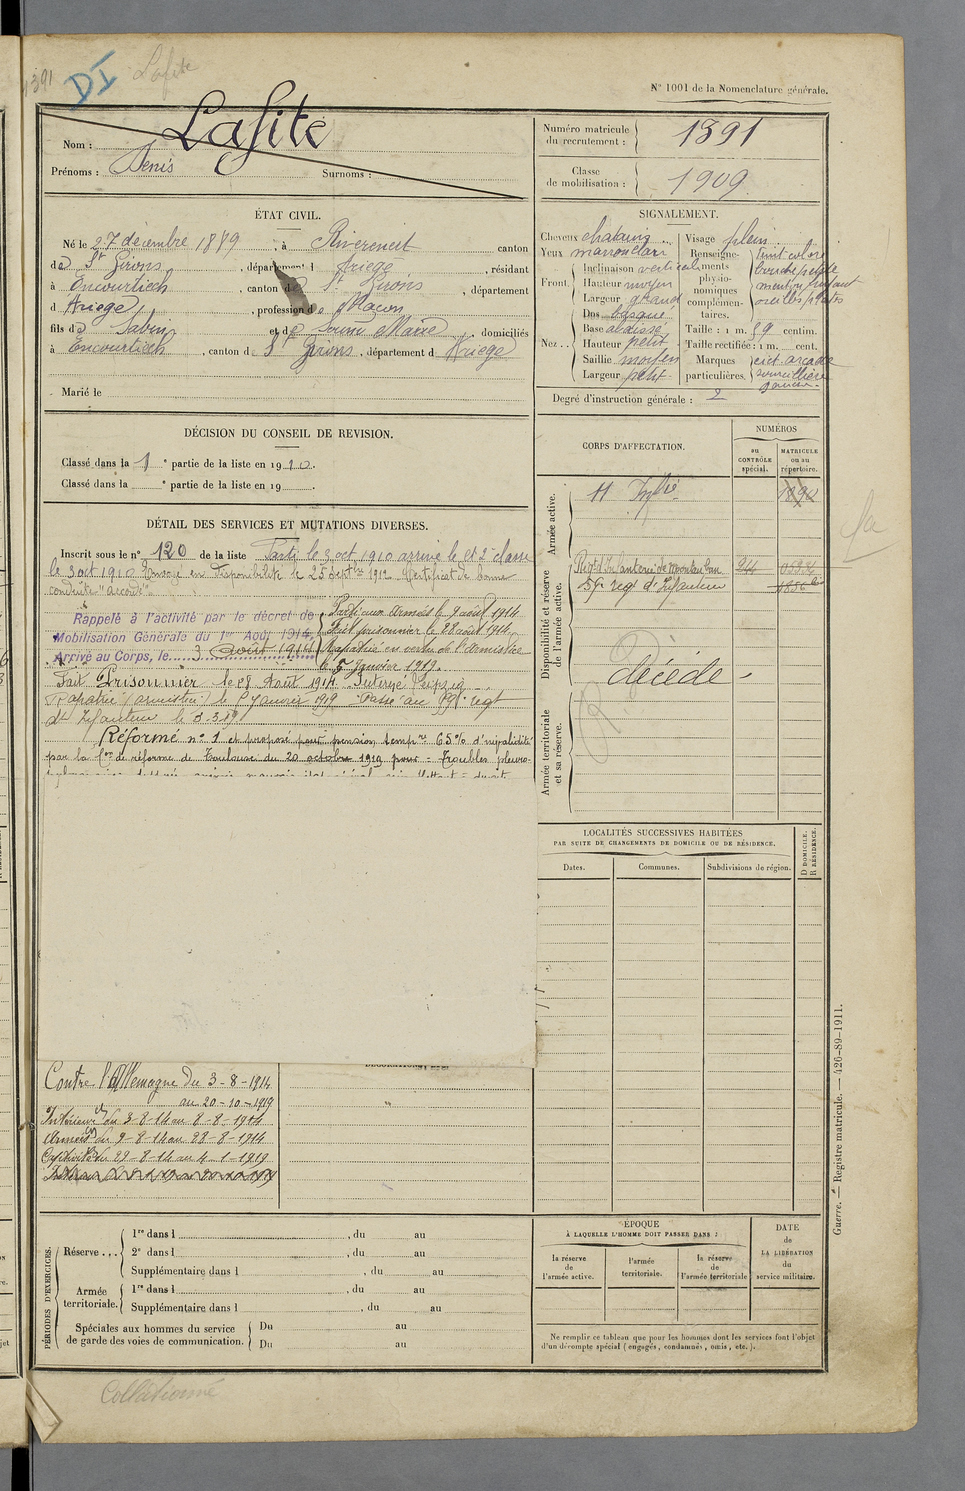 1391
DI
Lafite
N° 1001 de la Nomenclature générale.
Nom : Lafite
Prénoms : Denis Surnoms :
Numéro matricule du recrutement : 1391
Classe de mobilisation : 1909
ÉTAT CIVIL.
Né le 27 décembre 1889 à Rivèrenert canton
de St Girons, département d Ariège, résidant
à Encourtiech, canton de St Girons, département
d Ariège, profession de Maçon
fils de Sabin et de Soum Marie domiciliés
à Encourtiech, canton de St Girons, département d Ariège
Marié le
SIGNALEMENT.
Cheveux chatains
Yeux marron clair
Front. Inclinaison verticale
Hauteur moyen
Largeur grand
Nez... Dos busqué
Base abaissé
Hauteur petit
Saillie moyen
Largeur petit
Visage plein
Renseignements physionomiques complémentaires.
teint coloré
bouche petite
Taille : 1 m. 59 centim.
Taille rectifiée : 1 m. cent.
Marques particulières. cict. arcade
sourcillière
gauche.
Degré d'instruction générale : 2
DÉCISION DU CONSEIL DE REVISION.
Classé dans la 1e partie de la liste en 1910.
Classé dans la e partie de la liste en 19
DÉTAIL DES SERVICES ET MUTATIONS DIVERSES.
Inscrit sous le n° 120 de la liste Parti le 3 oct 1910 arrivé le et 2e classe
le 3 oct 1910 Envoyé en disponibilité le 25 septbre 1912 Certificat de bonne
conduite "accordé".
Rappelé à l'activité par le décret de
Mobilisation Générale du 1er Août 1914,
Arrivé au Corps, le 3 août 1914
Parti aux Armées le 9 août 1914
Fait prisonnier le 28 août 1914
Rapatrié en vertu de l'armistice
le 5 Janvier 1919.
Fait Prisonnier le 28 Août 1914 Interné Leipzig
Rapatrié (armistice) le 5 janvier 1919 Passé au 59e regt
d'Infanterie le 3.3.19
Réformé n° 1 et proposé pour pension tempre 65% d'invalidité
par la Con de réforme de Toulouse du 20 octobre 1919 pour = Troubles pleuro-
CORPS D'AFFECTATION.
NUMÉROS
au CONTRÔLE spécial.
MATRICULE ou au répertoire.
Armée active.
11 Inftie
Disponibilité et réserve de l'armée active.
Regt d'Infanterie de Montauban 244
59e regt d'Infanterie
décédé
Armée territoriale et sa réserve.
LOCALITÉS SUCCESSIVES HABITÉES
PAR SUITE DE CHANGEMENTS DE DOMICILE OU DE RÉSIDENCE.
Dates.
Communes.
Subdivisions de région.
D DOMICILE.
R RÉSIDENCE.
Contre l'Allemagne du 3-8-1914
au 20-10-1919
Intérieur du 3-8-14 au 8-8-1914
Armées du 9-8-14 au 28-8-1914
Captivité du 29-8-14 au 4-1-1919
PÉRIODES D'EXERCICES.
Réserve... 1re dans l , du au
2e dans l , du au
Supplémentaire dans l , du au
Armée territoriale. 1re dans l , du au
Supplémentaire dans l , du au
Spéciales aux hommes du service
de garde des voies de communication.
Du au
Du au
ÉPOQUE
À LAQUELLE L'HOMME DOIT PASSER DANS :
la réserve de l'armée active.
l'armée territoriale.
la réserve de l'armée territoriale
DATE
de
LA LIBÉRATION
du
service militaire.
Ne remplir ce tableau que pour les hommes dont les services font l'objet
d'un décompte spécial (engagés, condamnés, omis, etc.).
Guerre. — Registre matricule. — 426-89-1911.
Collationné